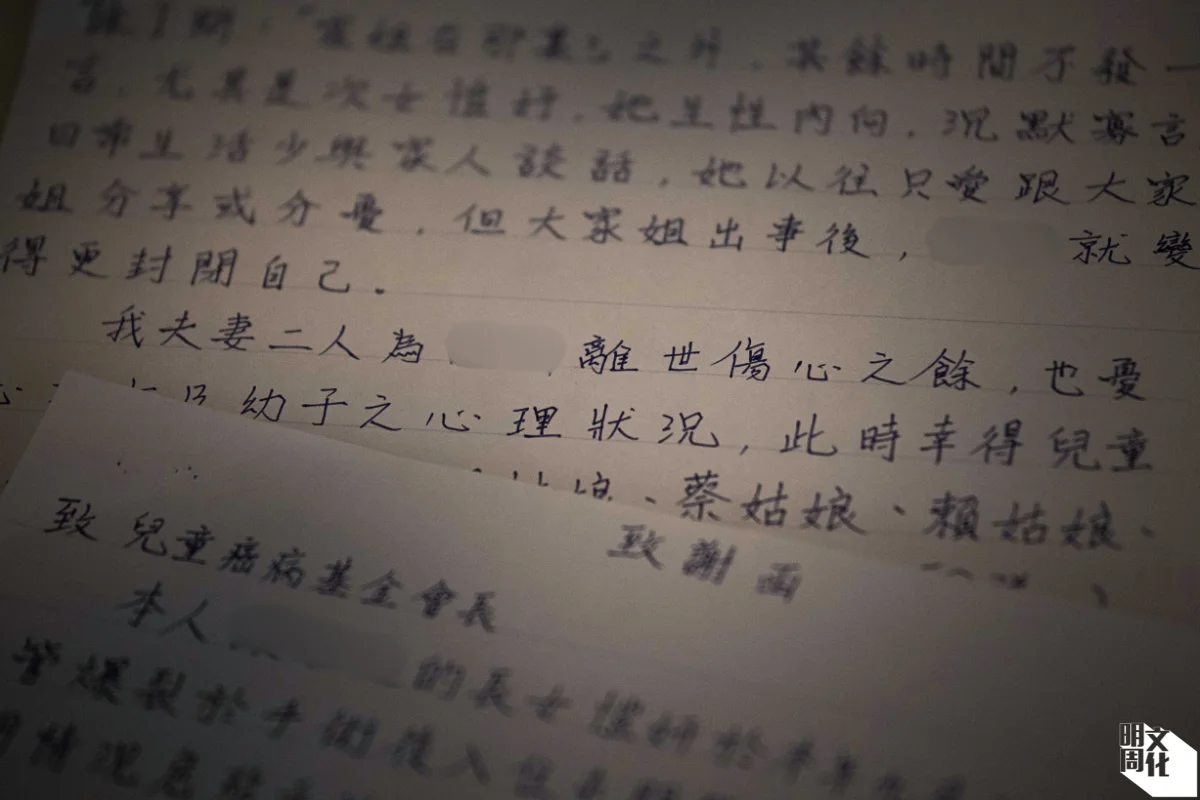 之外，其餘時間不發一
言，尤其是次女 ，她生性內向，沉默寡言
日常生活少與家人談話，她以往只愛跟大家
姐分享或分憂，但大家姐出事後， 就變
得更封閉自己。
我夫妻二人為 離世傷心之餘，也憂
心 幼子之心理狀況，此時幸得兒童
、蔡姑娘、賴姑娘、
致謝函
致 兒童癌病基金會長
本人 的長女 於
管爆裂於手術後入
情況危
明周文化